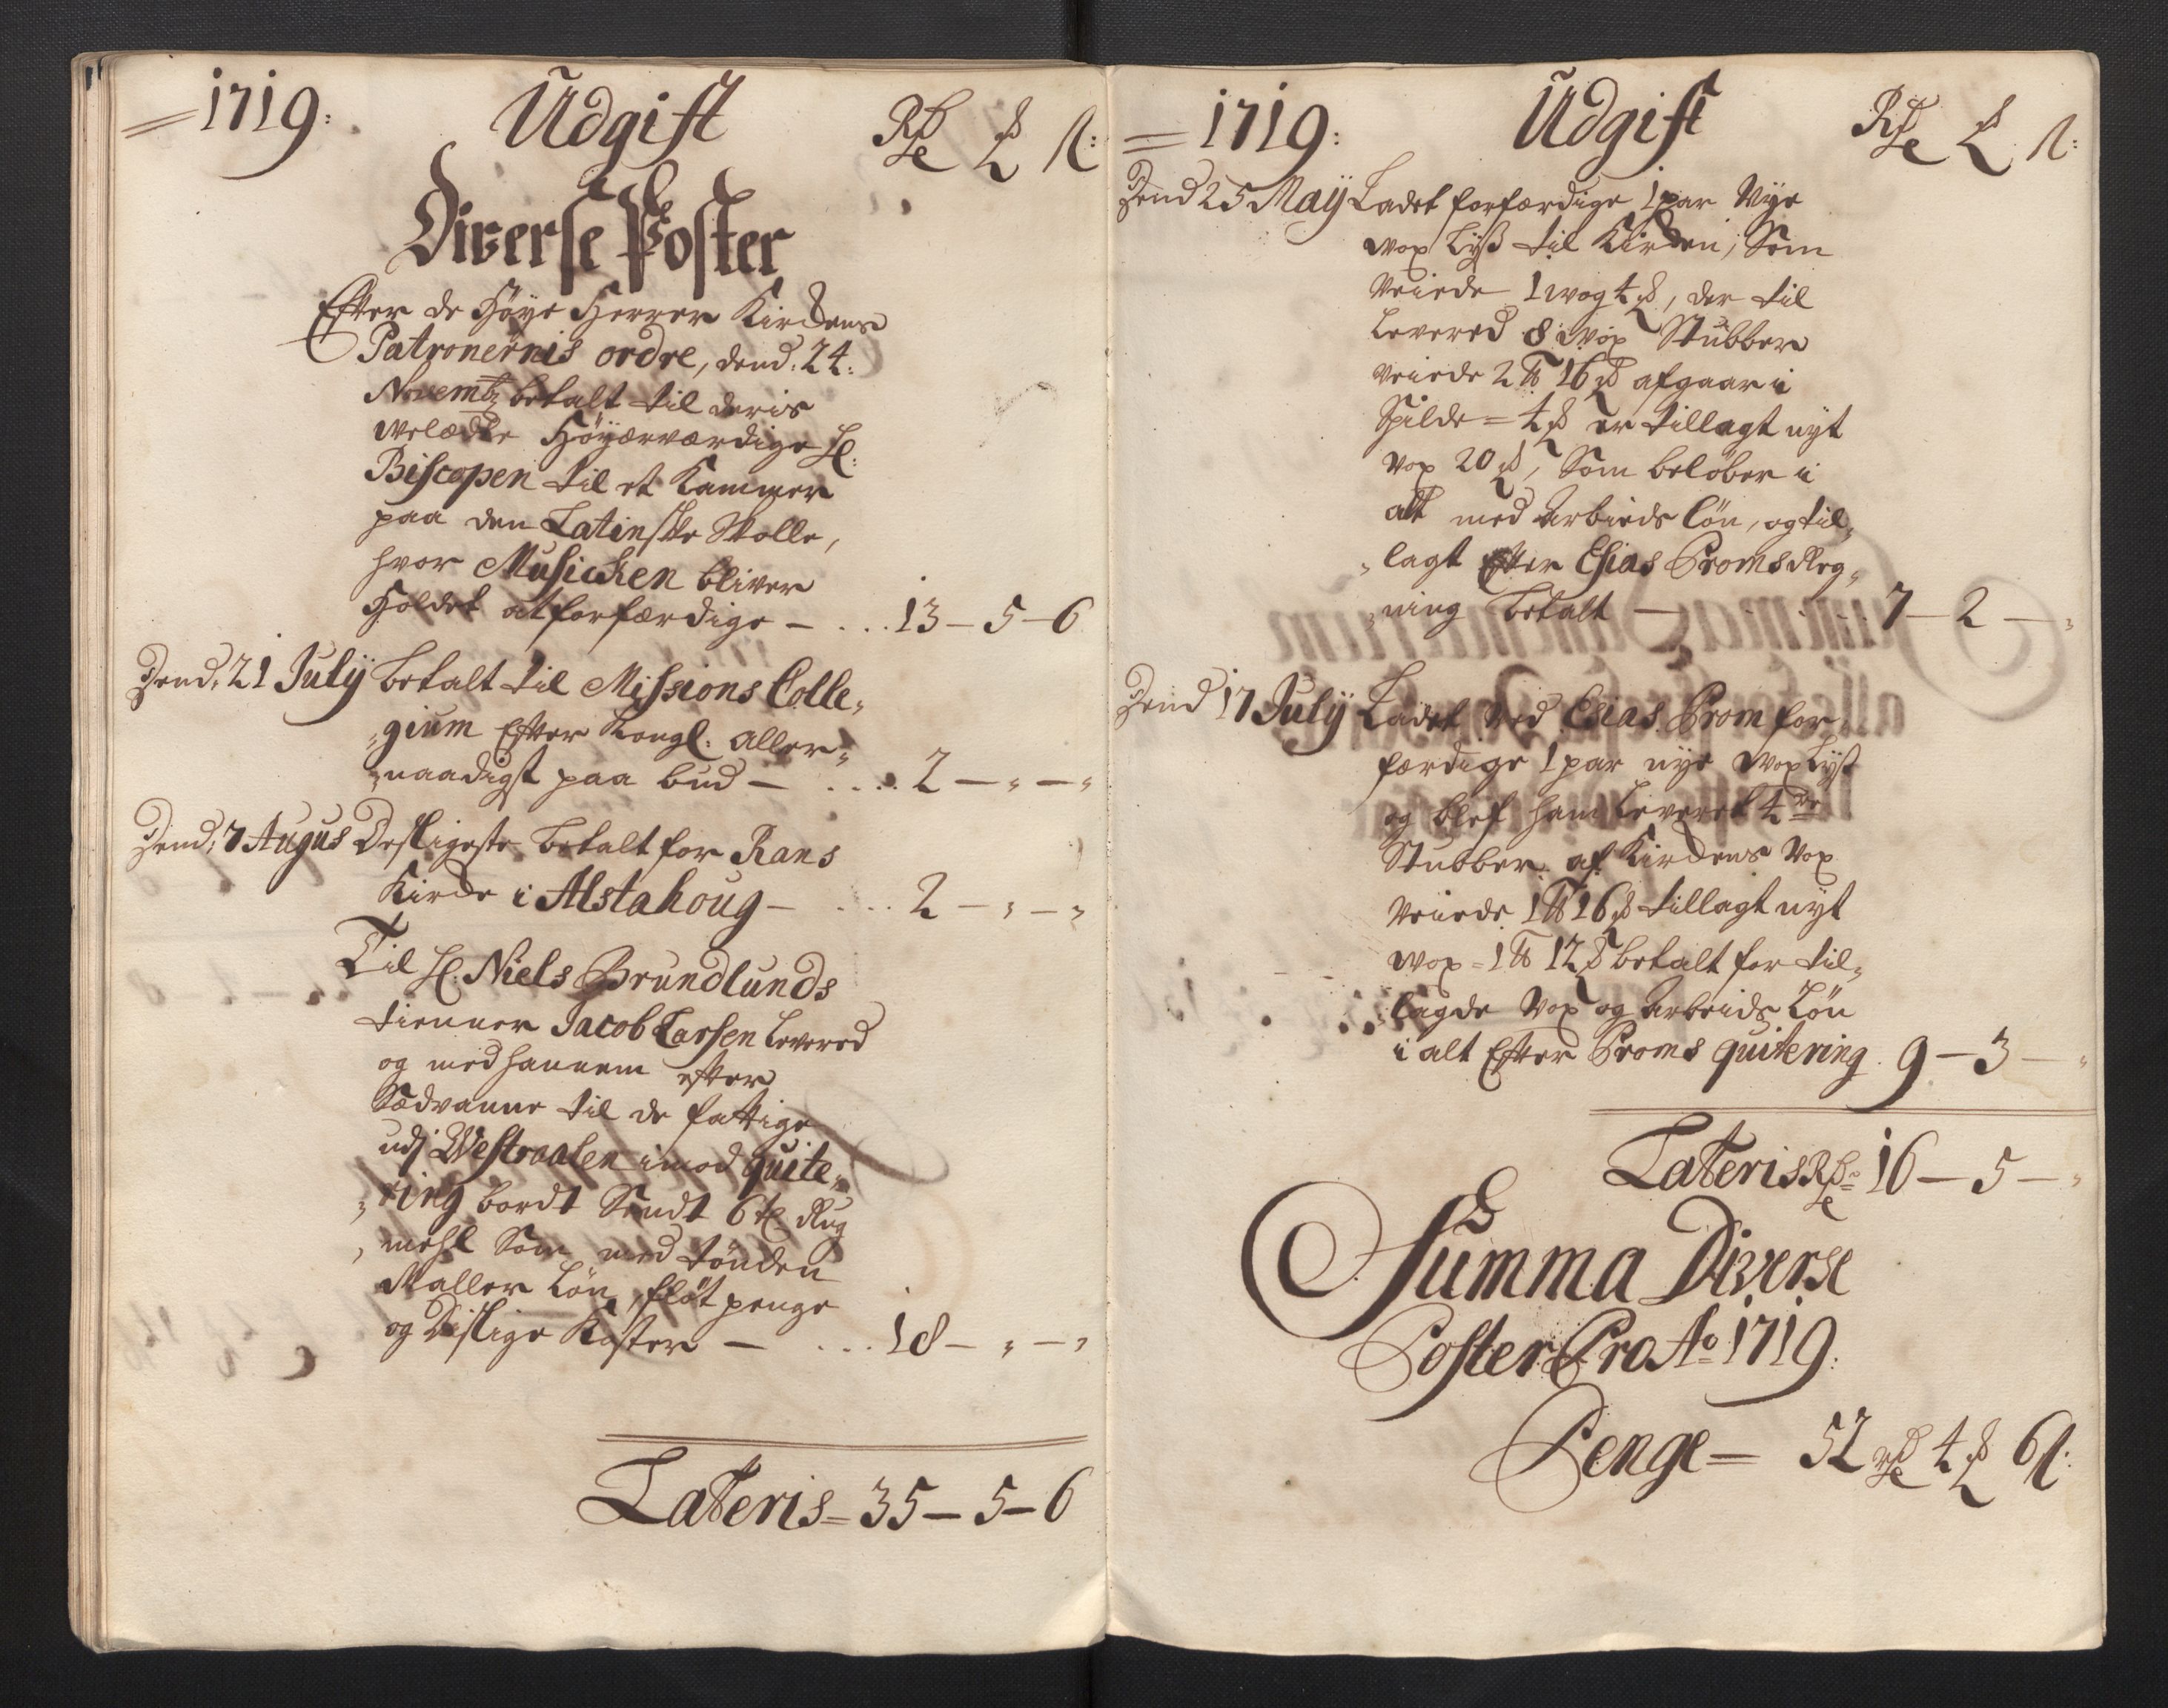 1719: Udgift Rdr ₰ ß:
Diverse Poster
Efter de Høÿe Herrer Kirckens
Patronernis ordre, dend: 24:
Novembr: betalt til deris
welædle Höÿærværdige H:
Biscopen til et Kammer
paa den Latinske Skolle,
hvor Musicken bliver
Holdet at forfærdige — ... 13 – 5 – 6
Dend: 21 Julÿ betalt til Missions Colle„
„gium Efter Kongl: aller„
„naadigst paa bud — .... 2 — „ — „
Dend: 7 Augus Desligeste betalt for Rans
Kircke i Alstahoug — .... 2 — „ — „
Til H: Niels Brundlunds
tienner Jacob Larsen Levered
og med hannem efter
Sædvanne til de fattige
udj Westraalen imod quite„
„ring bordt Sendt 6 td Rug
„mehl Som med tönden
Maller Lön, flöt penge
og Dislige Koster — ... 18 — „ — „
Lateris = 35 – 5 – 6
1719: Udgift Rdr ₰ ß:
Dend 25 Maÿ Ladet forfærdige 1 par Nÿe
wox Lÿß til Kircken, Som
Veiede 1 wog 4 ℔, der til
Levered 8 wox Stubber
veiede 2 ℔ 16 ₰ afgaar i
Spilde = 4 ₰ er tillagt nÿt
vox 20 ₰, Som belöber i
alt med arbieds lön, og til„
„lagt Efter Esias Proms Reg„
„ning betalt — ... 7 – 2 — „
Dend 17 Julÿ Ladet ved Esias Prom for„
færdige 1 par nÿe wox Lÿß
og blef ham Leveret 4de
Stubber af Kirckens Vox
Veiede 1 ℔ 16 ₰ tillagt nÿt
wox = 1 ℔ 12 ₰ betalt for til„
„lagde Vox og arbeids Lön
i alt Efter Proms quitering . 9 – 3 — „
Lateris Rdr = 16 – 5 – „
Summa Diverse
Poster Pro Ao 1719:
Penge — 52 rdr 4 ₰ 6 ß: